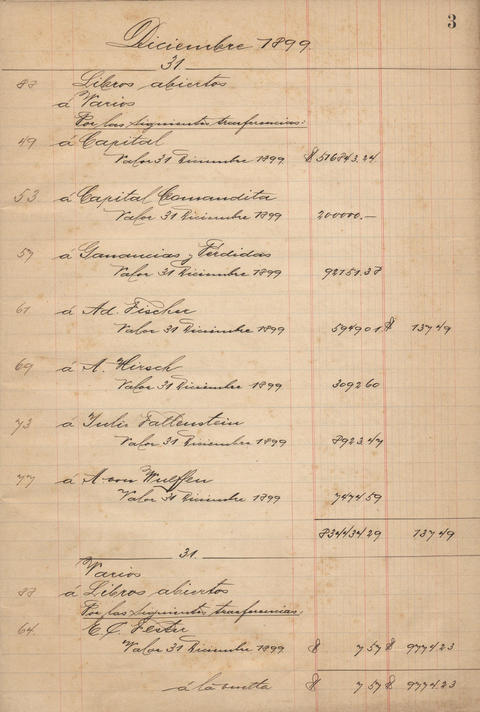 3
Diciembre 1899.
31
88 Libros abiertos
á Varios
Por las siguientes trasferencias:
49 á Capital
Valor 31 Diciembre 1899 $ 516843.24
53 á Capital Comandita
Valor 31 Diciembre 1899 200000.—
57 á Ganancias y Pérdidas
Valor 31 Diciembre 1899 92151.38
61 á Ad. Fischer
Valor 31 Diciembre 1899 5949 01 $ 137 49
69 á A. Hirsch
Valor 31 Diciembre 1899 3092 60
73 á Julio Fallenstein
Valor 31 Diciembre 1899 8923.47
77 á A von Wulffen
Valor 31 Diciembre 1899 7474 59
834434.29 137 49
31
Varios
88 á Libros abiertos
Por las siguientes trasferencias:
64. E. C.
Valor 31 Diciembre 1899 $ 7 57 $ 9774.23
á la vuelta $ 7 57 $ 9774.23